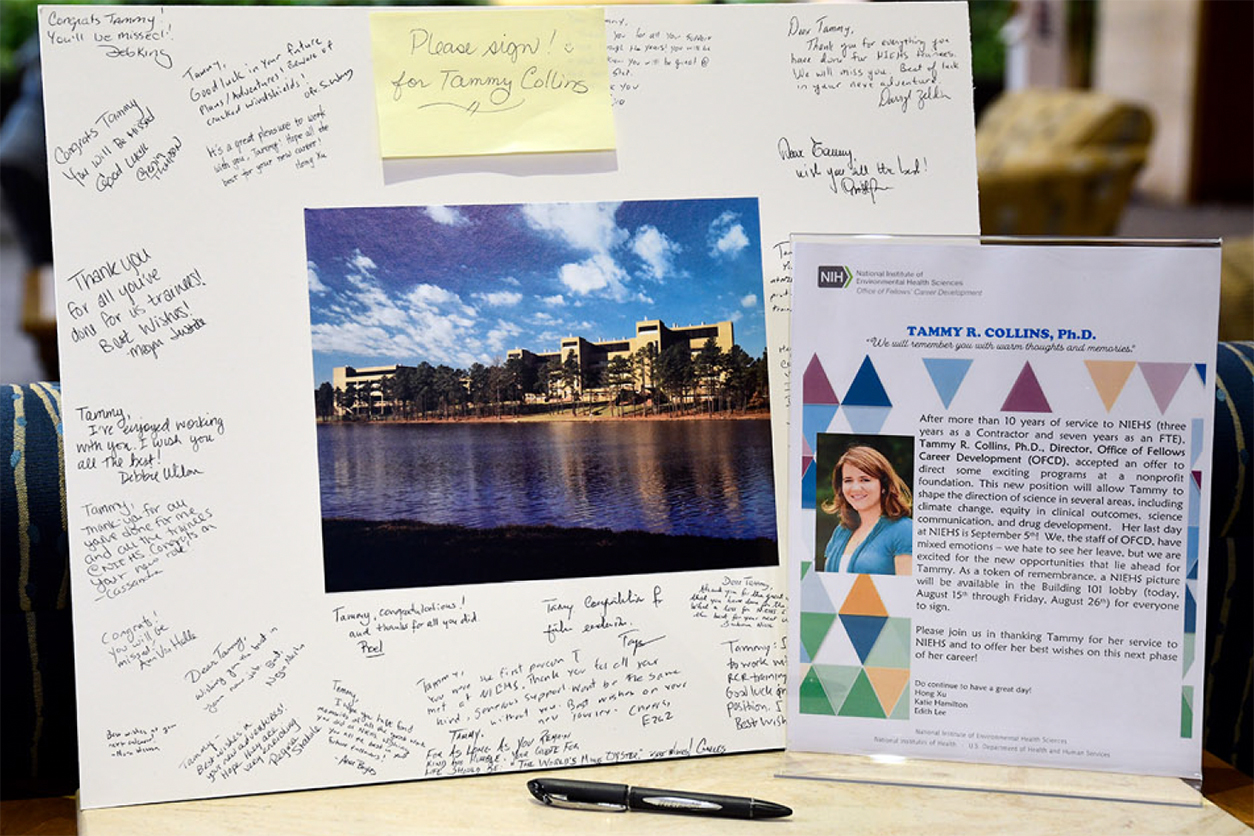 Congrats Tammy!
You'll be missed!!
Deb King
Tammy,
Good luck in your future
Plans/Adventures! Beware of
cracked windshields!
Congrats Tammy
You will Be Missed
Good luck
It's a great pleasure to work
with you, Tammy! Hope all the
best for your new career!
Hong Xu
Please sign!
for Tammy Collins
you for all your
years! you will be
you will be great @
Dear Tammy,
Thank you for everything you
have done for NIEHS trainees.
We will miss you. Best of luck
in your next adventure.
Darryl Zeldin
Dear Tammy,
wish you all the best!
Thank you
for all you've
done for us trainees!
Best Wishes!
Tammy,
I've enjoyed working
with you. I wish you
all the best!
Debbie Wilson
Tammy!
Thank you for all
you've done for me
and all the trainees
@ NIEHS. Congrats on
your new role!
-Cassandra
Congrats!
You will be
missed!
Dear Tammy,
wishing you the best in
your new job. Best,
Best wishes of your
Tammy -
Best wishes in
your new adventures!
Hope they are
very rewarding
Regina
Tammy,
I hope you have fond
memories of all the
you did
you all the best in
future endeavors!
Tammy, congratulations!
and thanks for all you did.
Tammy Congratulations
Tammy!
You were the first person I
met at NIEHS. Thank you for all your
kind, generous support. Won't be the same
without you. Best wishes on your
new journey. Cheers,
Tammy,
For as long as you remain
kind and humble, your quote for
life should be "The world's mine oyster."
Dear Tammy,
thank you for the great
that you have done for the
What a loss for NIEHS
the best for your new
Tammy:
to work
RCR training
Good luck
position.
Best Wish
NIH
National Institute of
Environmental Health Sciences
Office of Fellows' Career Development
TAMMY R. COLLINS, Ph.D.
"We will remember you with warm thoughts and memories."
After more than 10 years of service to NIEHS (three
years as a Contractor and seven years as an FTE),
Tammy R. Collins, Ph.D., Director, Office of Fellows
Career Development (OFCD), accepted an offer to
direct some exciting programs at a nonprofit
foundation. This new position will allow Tammy to
shape the direction of science in several areas, including
climate change, equity in clinical outcomes, science
communication, and drug development. Her last day
at NIEHS is September 5th! We, the staff of OFCD, have
mixed emotions – we hate to see her leave, but we are
excited for the new opportunities that lie ahead for
Tammy. As a token of remembrance, a NIEHS picture
will be available in the Building 101 lobby (today,
August 15th through Friday, August 26th) for everyone
to sign.
Please join us in thanking Tammy for her service to
NIEHS and to offer her best wishes on this next phase
of her career!
Do continue to have a great day!
Hong Xu
Katie Hamilton
Edith Lee
National Institute of Environmental Health Sciences
National Institutes of Health · U.S. Department of Health and Human Services